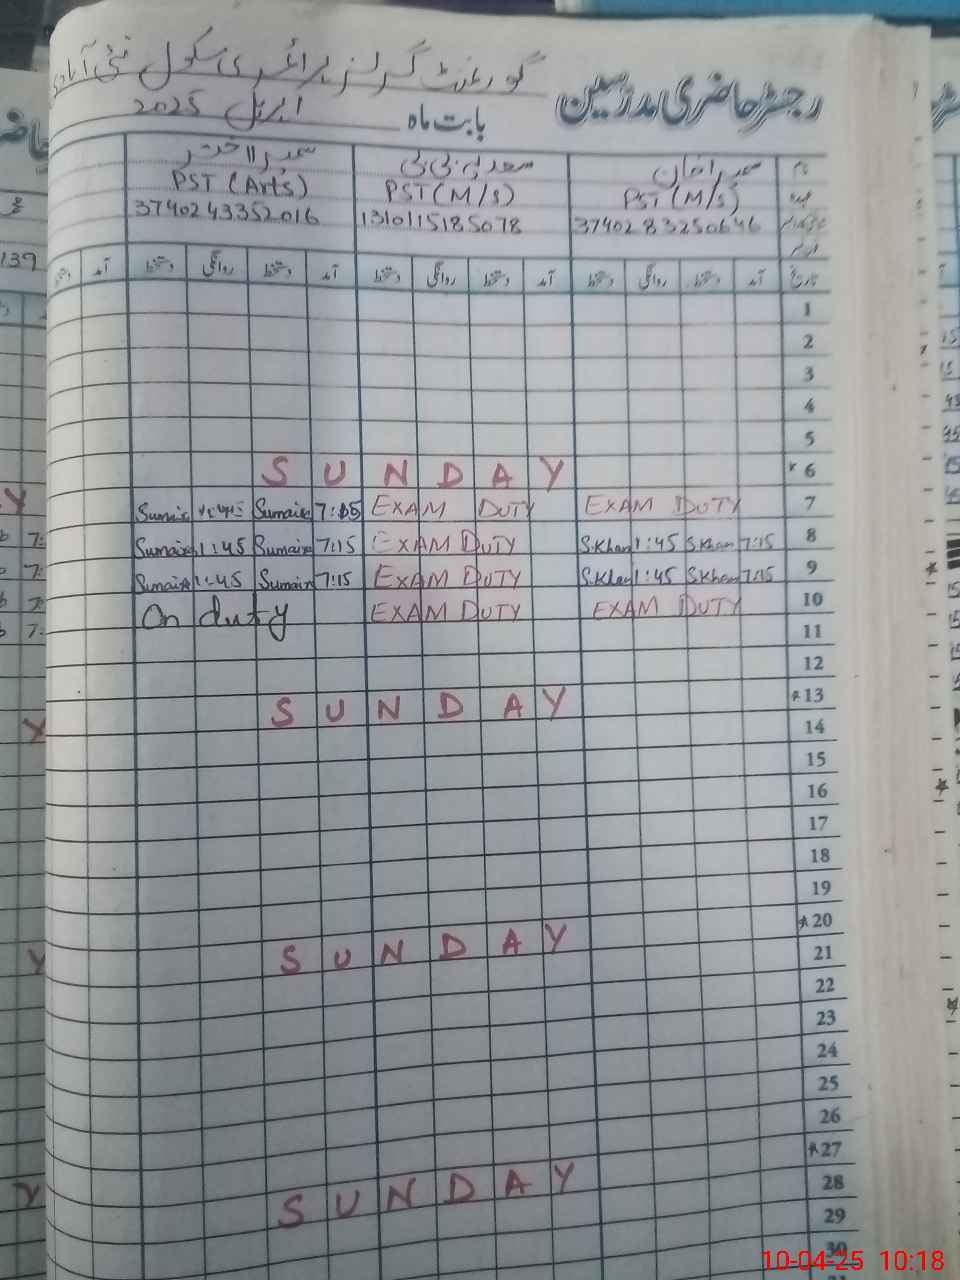 رجسٹر حاضری مدرسین گورنمنٹ گرلز پرائمری سکول نئی آبادی
بابت ماہ اپریل 2025
نام سمیرا خان سعدیہ بی بی سمیرا اختر
عہدہ PST (M/S) PST (M/S) PST (Arts)
3740283250646 1310115185078 3740243352016
تاریخ آمد دستخط روانگی دستخط آمد دستخط روانگی دستخط آمد دستخط روانگی دستخط آمد
139
1
2
3
4
5
6 SUNDAY
7 EXAM DUTY EXAM DUTY 7:15 Sumaira 1:45 Sumaira
8 7:15 S.Khan 1:45 S.Khan EXAM DUTY 7:15 Sumaira 1:45 Sumaira
9 7:15 S.Khan 1:45 S.Khan EXAM DUTY 7:15 Sumaira 1:45 Sumaira
10 EXAM DUTY EXAM DUTY On duty
11
12
13 SUNDAY
14
15
16
17
18
19
20 SUNDAY
21
22
23
24
25
26
27 SUNDAY
28
29
30
10-04-25 10:18